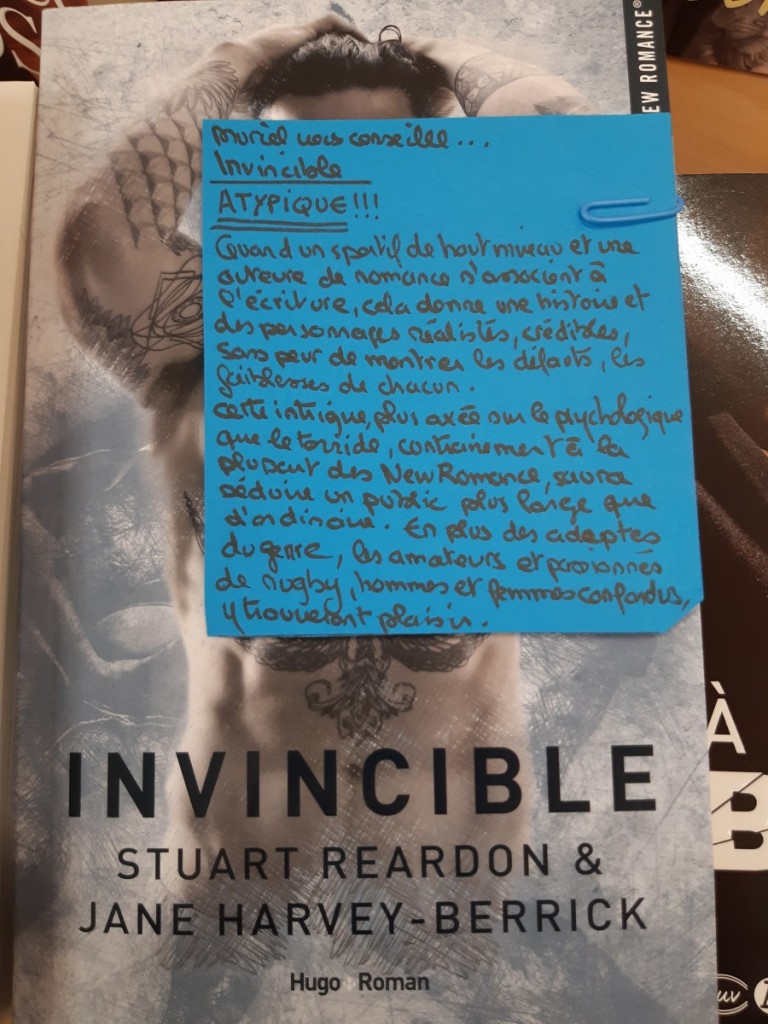 EW ROMANCE®
Muriel vous conseille...
Invincible
ATYPIQUE!!!
Quand un sportif de haut niveau et une
auteure de romance s'associent à
l'écriture, cela donne une histoire et
des personnages réalistes, crédibles,
sans peur de montrer les défauts, les
faiblesses de chacun.
Cette intrigue, plus axée sur le psychologique
que le torride, contrairement à la
plupart des New Romance, saura
séduire un public plus large que
d'ordinaire. En plus des adeptes
du genre, les amateurs et passionnés
de rugby, hommes et femmes confondus,
y trouveront plaisir.
INVINCIBLE
STUART REARDON &
JANE HARVEY-BERRICK
Hugo Roman
À
B
uv